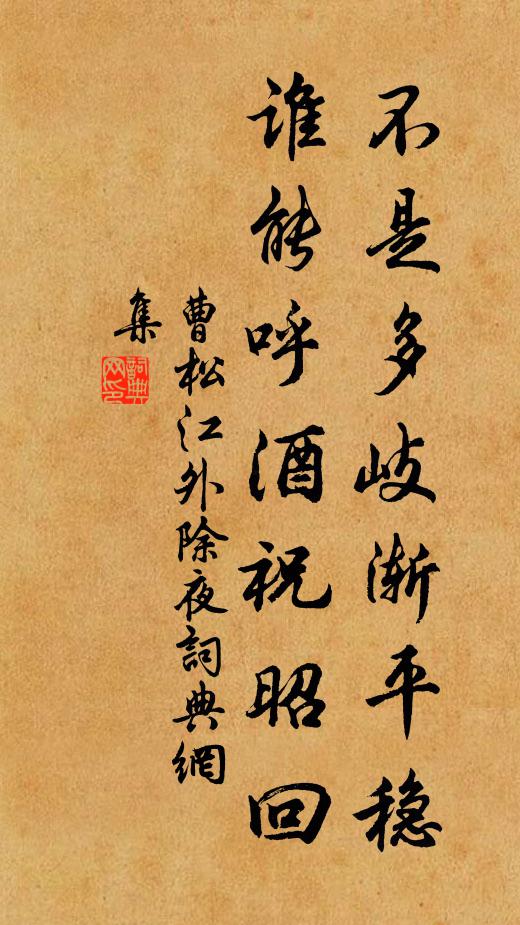 不是多岐渐平稳
谁能呼酒祝昭回
曹松江外除夜詞典網
集
詞典
网印